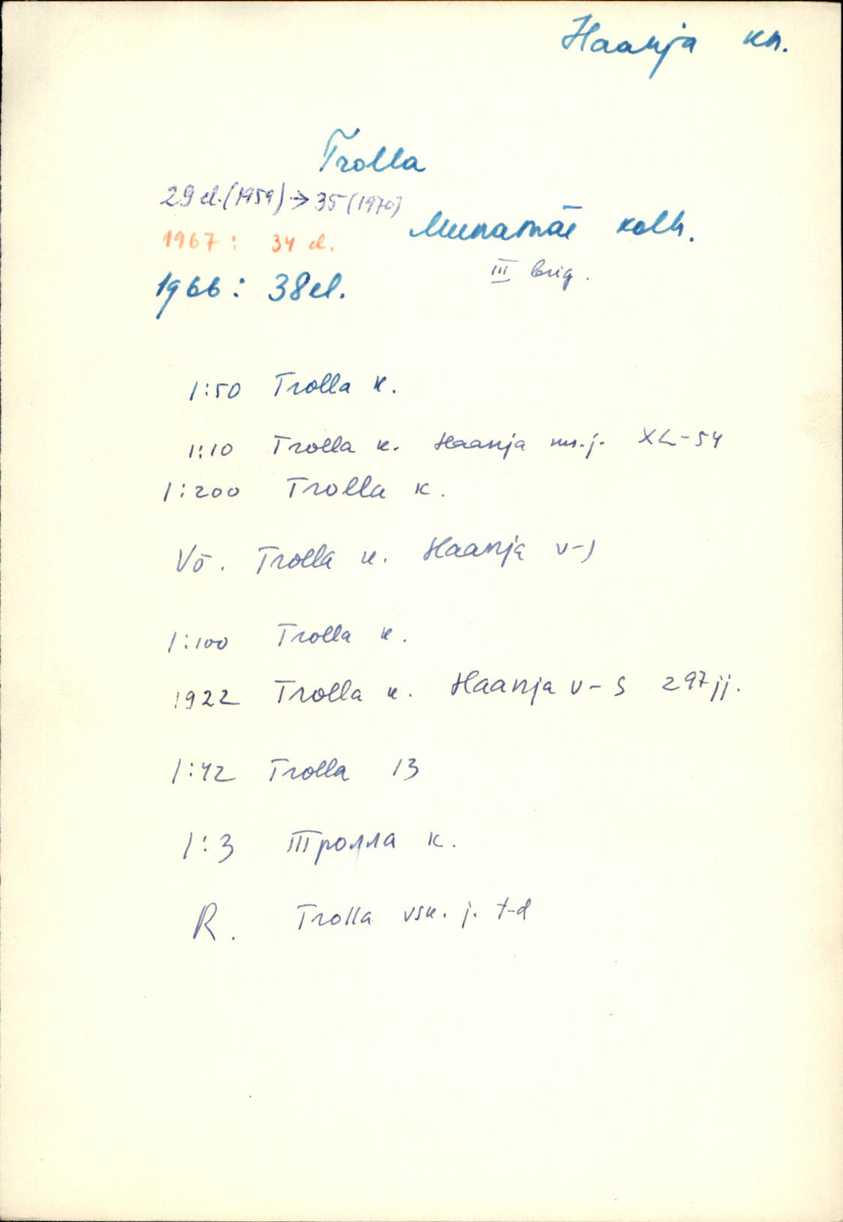 Haanja kn.
Trolla
29 el. (1959) → 35 (1970)
Munamäe kolh.
1967: 34 el.
III brig.
1966: 38 el.
1:50 Trolla k.
1:10 Trolla k. Haanja XL-54
1:200 Trolla k.
Võ. Trolla k. Haanja v-j
1:100 Trolla k.
1922 Trolla k. Haanja v-s 297 jj.
1:42 Trolla 13
1:3 Тролла к.
R. Trolla vsk. j. t-d